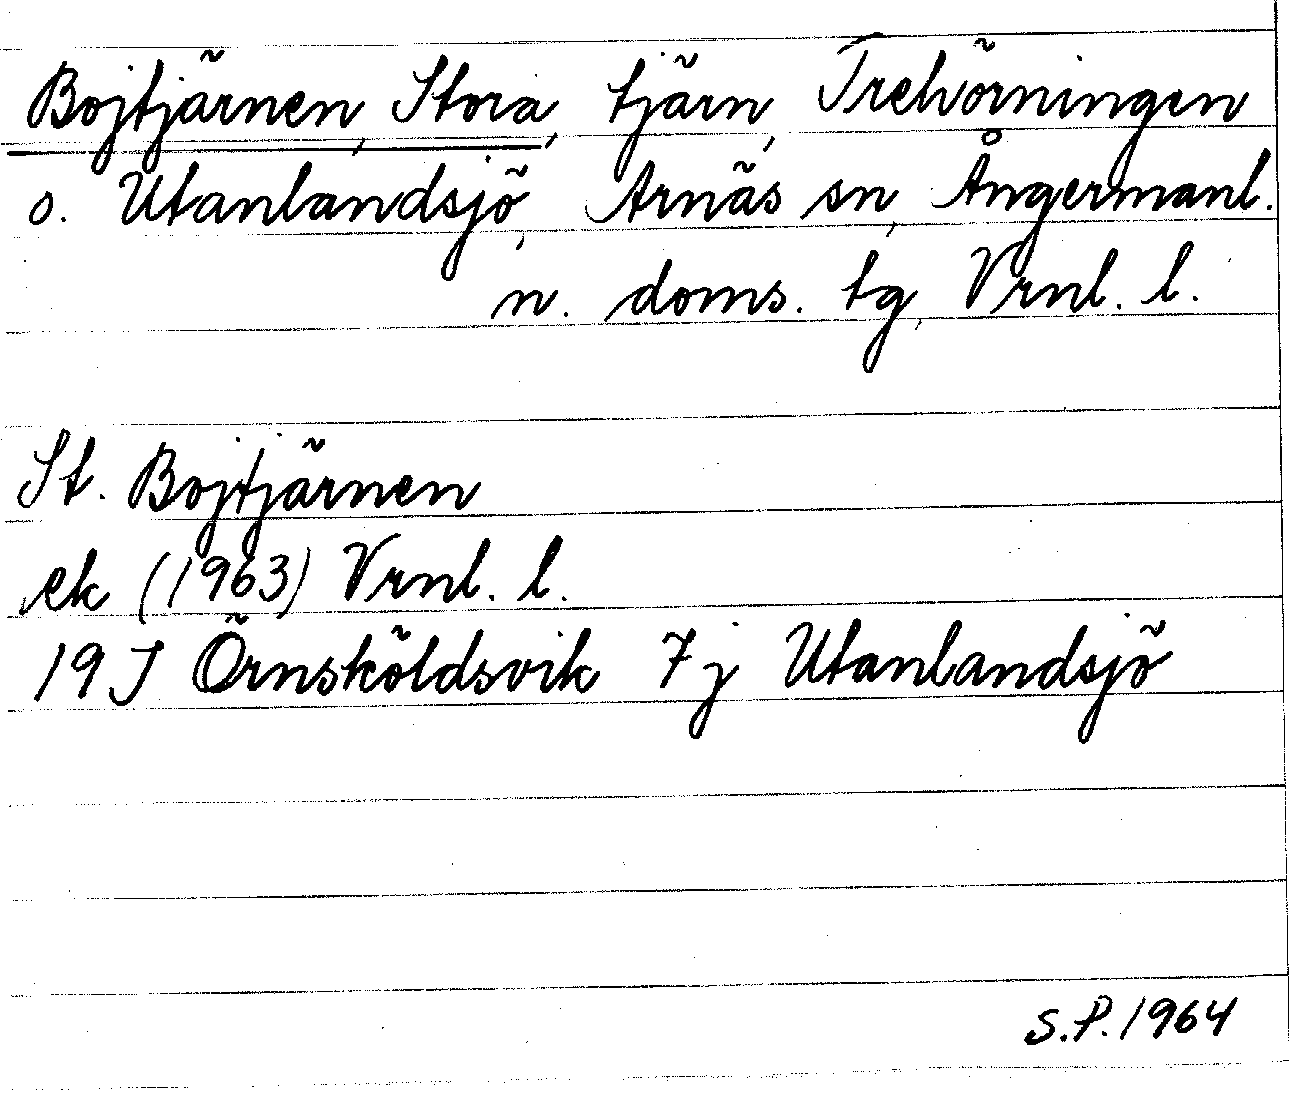 Bojtjärnen, Stora, tjärn, Trehörningen
o. Utanlandsjö, Arnäs sn, Ångermanl.
n. doms. tg, Vrnl. l.
St. Bojtjärnen
ek (1963) Vrnl. l.
19 J Örnsköldsvik 7 j Utanlandsjö
S.P. 1964